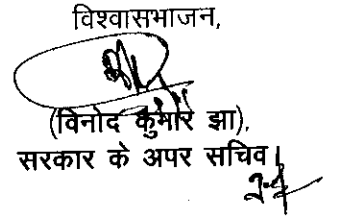 विश्वासभाजन,
(विनोद कुमार झा),
सरकार के अपर सचिव।